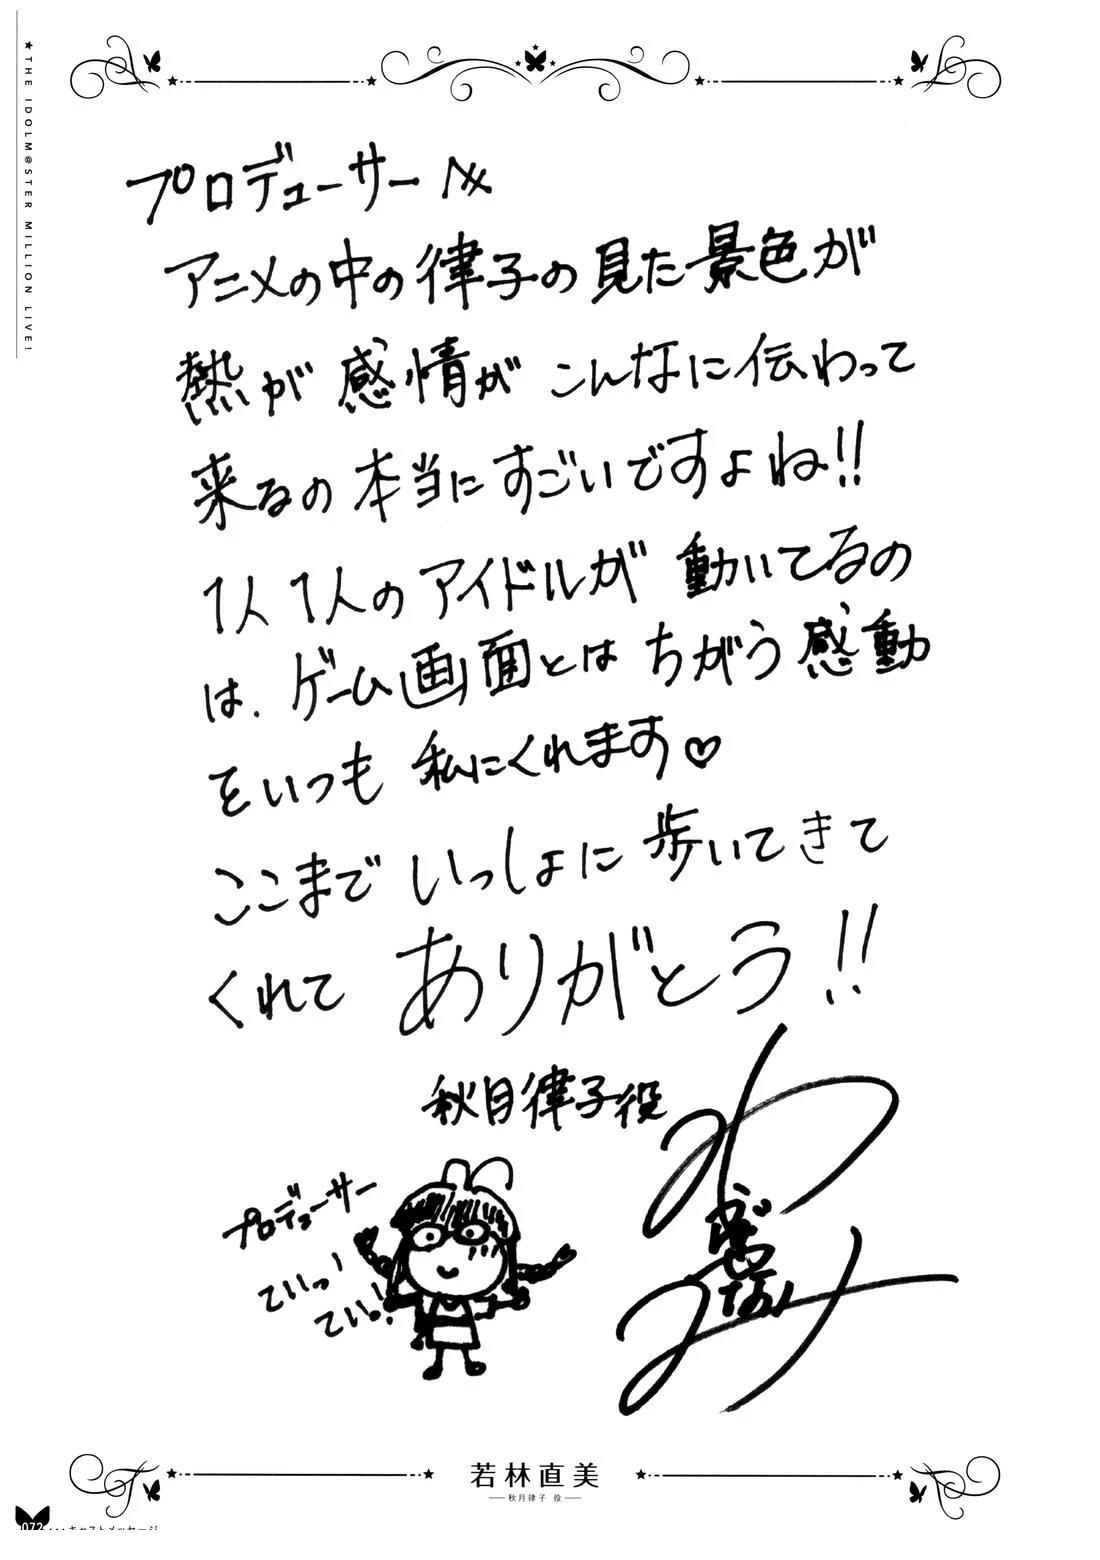 ★THE IDOLM@STER MILLION LIVE!
プロデューサーへ
アニメの中の律子の見た景色が
熱が 感情が こんなに伝わって
来るの本当にすごいですよね!!
1人1人のアイドルが動いてるの
は、ゲーム画面とは ちがう感動
をいつも 私にくれます♡
ここまで いっしょに 歩いてきて
くれて ありがとう!!
秋月律子役
プロデューサー
てぃっ!
てぃっ!
若林直美
秋月律子 役
072 ・・・キャストメッセージ